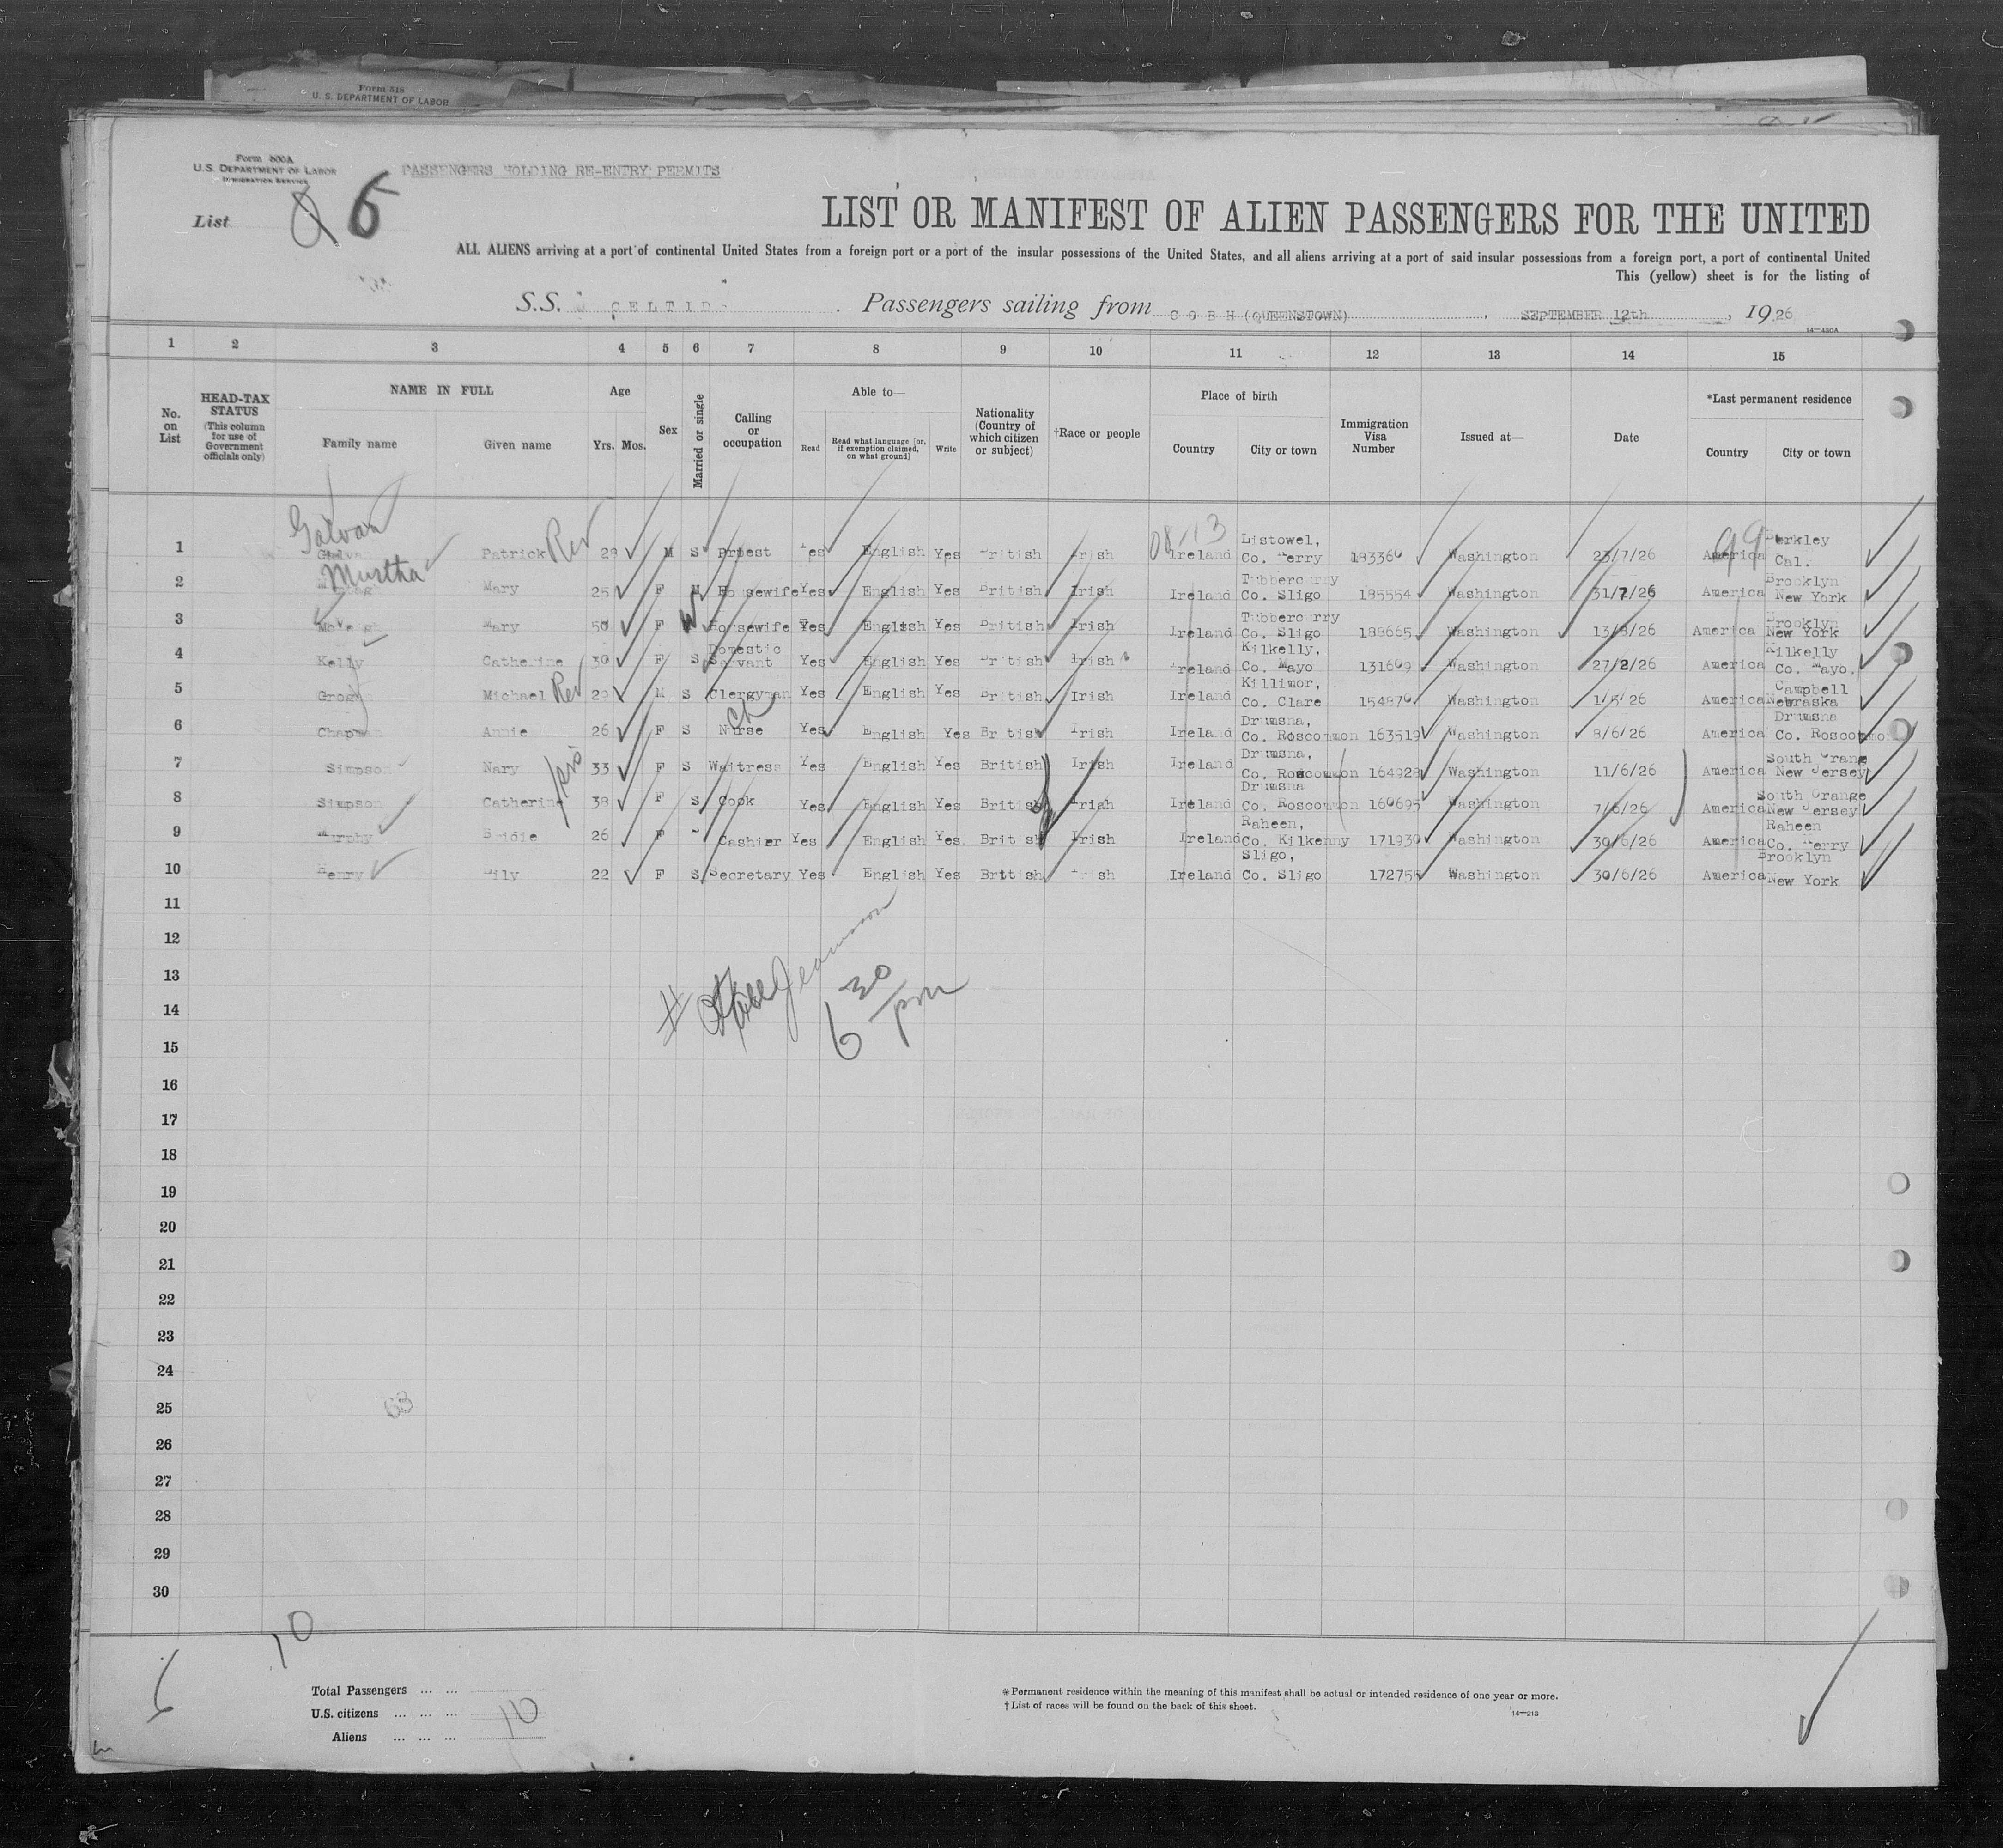 Form 518
U. S. DEPARTMENT OF LABOR
Form 500A
U.S. DEPARTMENT OF LABOR
IMMIGRATION SERVICE
PASSENGERS HOLDING RE-ENTRY PERMITS
List 5
LIST OR MANIFEST OF ALIEN PASSENGERS FOR THE UNITED
ALL ALIENS arriving at a port of continental United States from a foreign port or a port of the insular possessions of the United States, and all aliens arriving at a port of said insular possessions from a foreign port, a port of continental United
This (yellow) sheet is for the listing of
S.S. CELTIC Passengers sailing from COBH (QUEENSTOWN), SEPTEMBER 12th, 1926
14-480A
1 2 3 4 5 6 7 8 9 10 11 12 13 14 15
No. on List
HEAD-TAX STATUS (This column for use of Government officials only)
NAME IN FULL
Family name Given name
Age
Yrs. Mos.
Sex
Married or single
Calling or occupation
Able to—
Read
Read what language (or, if exemption claimed, on what ground)
Write
Nationality (Country of which citizen or subject)
†Race or people
Place of birth
Country City or town
Immigration Visa Number
Issued at—
Date
*Last permanent residence
Country City or town
Galvan
08/13
99
1 Patrick Rev 29 M S Priest Yes English Yes British Irish Ireland Listowel, Co. Kerry 183360 Washington 23/7/26 America Berkley Cal.
2 Murtha Mary 25 F M Housewife Yes English Yes British Irish Ireland Tubbercurry Co. Sligo 185554 Washington 31/7/26 America Brooklyn New York
3 Mary 50 F W Housewife Yes English Yes British Irish Ireland Tubbercurry Co. Sligo 188665 Washington 13/8/26 America Brooklyn New York
4 Kelly Catherine 30 F S Domestic Servant Yes English Yes British Irish Ireland Kilkelly, Co. Mayo 131609 Washington 27/2/26 America Kilkelly Co. Mayo.
5 Grogan Michael Rev 29 M S Clergyman Yes English Yes British Irish Ireland Killimor, Co. Clare 154870 Washington 1/5/26 America Campbell Nebraska
ch
6 Chapman Annie 26 F S Nurse Yes English Yes British Irish Ireland Drumsna, Co. Roscommon 163519 Washington 8/6/26 America Drumsna Co. Roscommon
7 Simpson Mary 33 F S Waitress Yes English Yes British Irish Ireland Drumsna, Co. Roscommon 164928 Washington 11/6/26 America South Orange New Jersey
8 Simpson Catherine 38 F S Cook Yes English Yes British Irish Ireland Drumsna Co. Roscommon 160695 Washington 7/6/26 America South Orange New Jersey
9 Murphy Bridie 26 F S Cashier Yes English Yes British Irish Ireland Raheen, Co. Kilkenny 171930 Washington 30/6/26 America Raheen Co. Kerry
10 Henry Lily 22 F S Secretary Yes English Yes British Irish Ireland Sligo, Co. Sligo 172755 Washington 30/6/26 America Brooklyn New York
11
12
13
#
6 30 pm
14
15
16
17
18
19
20
21
22
23
24
25
63
26
27
28
29
30
10
6
Total Passengers ... ...
U.S. citizens ... ... ...
10
Aliens ... ... ...
* Permanent residence within the meaning of this manifest shall be actual or intended residence of one year or more.
† List of races will be found on the back of this sheet.
14-213